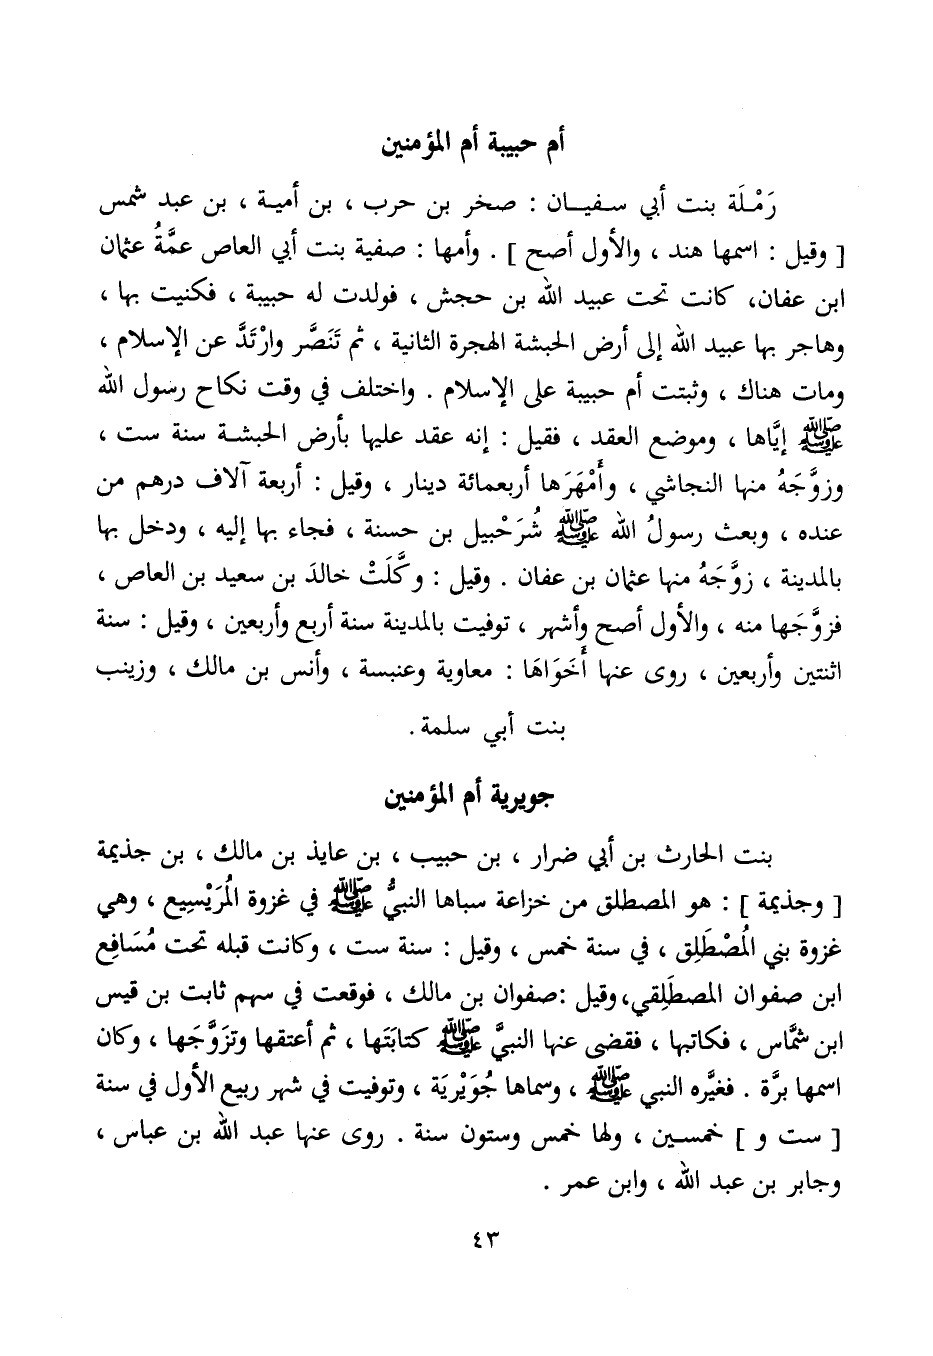 أم حبيبة أم المؤمنين
رَمْلَة بنت أبي سفيان : صخر بن حرب ، بن أمية ، بن عبد شمس
[ وقيل : اسمها هند ، والأول أصح ] . وأمها : صفية بنت أبي العاص عمَّةُ عثمان
ابن عفان، كانت تحت عبيد الله بن حجش ، فولدت له حبيبة ، فكنيت بها ،
وهاجر بها عبيد الله إلى أرض الحبشة الهجرة الثانية ، ثم تَنَصَّر وارْتَدَّ عن الإسلام ،
ومات هناك ، وثبتت أم حبيبة على الإسلام . واختلف في وقت نكاح رسول الله
ﷺ إيَّاها ، وموضع العقد ، فقيل : إنه عقد عليها بأرض الحبشة سنة ست ،
وزوَّجَهُ منها النجاشي ، وأَمْهَرَها أربعمائة دينار ، وقيل : أربعة آلاف درهم من
عنده ، وبعث رسولُ الله ﷺ شُرَحْبيل بن حسنة ، فجاء بها إليه ، ودخل بها
بالمدينة ، زوَّجَهُ منها عثمان بن عفان . وقيل : وكَّلَتْ خالدَ بن سعيد بن العاص ،
فزوَّجَها منه ، والأول أصح وأشهر ، توفيت بالمدينة سنة أربع وأربعين ، وقيل : سنة
اثنتين وأربعين ، روى عنها أَخَوَاهَا : معاوية وعنبسة ، وأنس بن مالك ، وزينب
بنت أبي سلمة .
جويرية أم المؤمنين
بنت الحارث بن أبي ضرار ، بن حبيب ، بن عايذ بن مالك ، بن جذيمة
[ وجذيمة ] : هو المصطلق من خزاعة سباها النبيُّ ﷺ في غزوة المُرَيْسِيع ، وهي
غزوة بني المُصْطَلِق ، في سنة خمس ، وقيل : سنة ست ، وكانت قبله تحت مُسَافِع
ابن صفوان المصطَلِقي، وقيل :صفوان بن مالك ، فوقعت في سهم ثابت بن قيس
ابن شمَّاس ، فكاتبها ، فقضى عنها النبيَّ ﷺ كتابَتَها ، ثم أعتقها وتزوَّجَها ، وكان
اسمها برَّة . فغيَّره النبي ﷺ ، وسماها جُوَيْريَة ، وتوفيت في شهر ربيع الأول في سنة
[ ست و ] خمسين ، ولها خمس وستون سنة . روى عنها عبد الله بن عباس ،
وجابر بن عبد الله ، وابن عمر .
٤٣